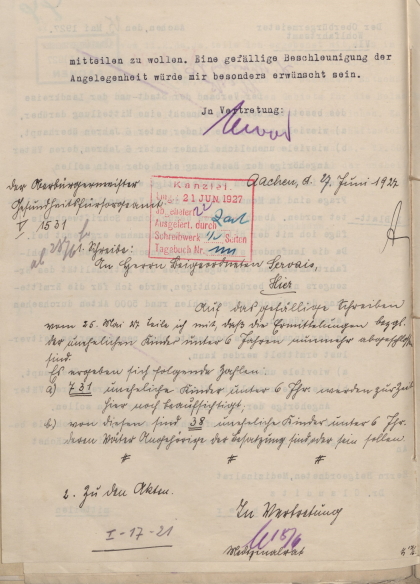 mitteilen zu wollen. Eine gefällige Beschleunigung der
Angelegenheit würde mir besonders erwünscht sein.
In Vertretung:
Der Oberbürgermeister
Gesundheitsfürsorgeamt
V 1531
Aachen, d. 27. Juni 1927
Kanzlei.
21 JUN. 1927
Ausgefert. durch
Schreibwerk 1/2 Seiten
Tagebuch Nr.
1. Schreibe:
An Herrn Beigeordneten Servais,
Hier
Auf das gefällige Schreiben
vom 25. Mai 27 teile ich mit, daß die Ermittelungen bezgl.
der unehelichen Kinder unter 6 Jahren nunmehr abgeschlossen
sind.
Es ergeben sich folgende Zahlen:
a) 731 uneheliche Kinder unter 6 Jhr. werden zur Zeit
hier noch beaufsichtigt,
b) von diesen sind 38 uneheliche Kinder unter 6 Jhr.
deren Väter Angehörige der Besatzung sind oder sein sollen.
2. Zu den Akten.
In Vertretung
I-17-21
Medizinalrat